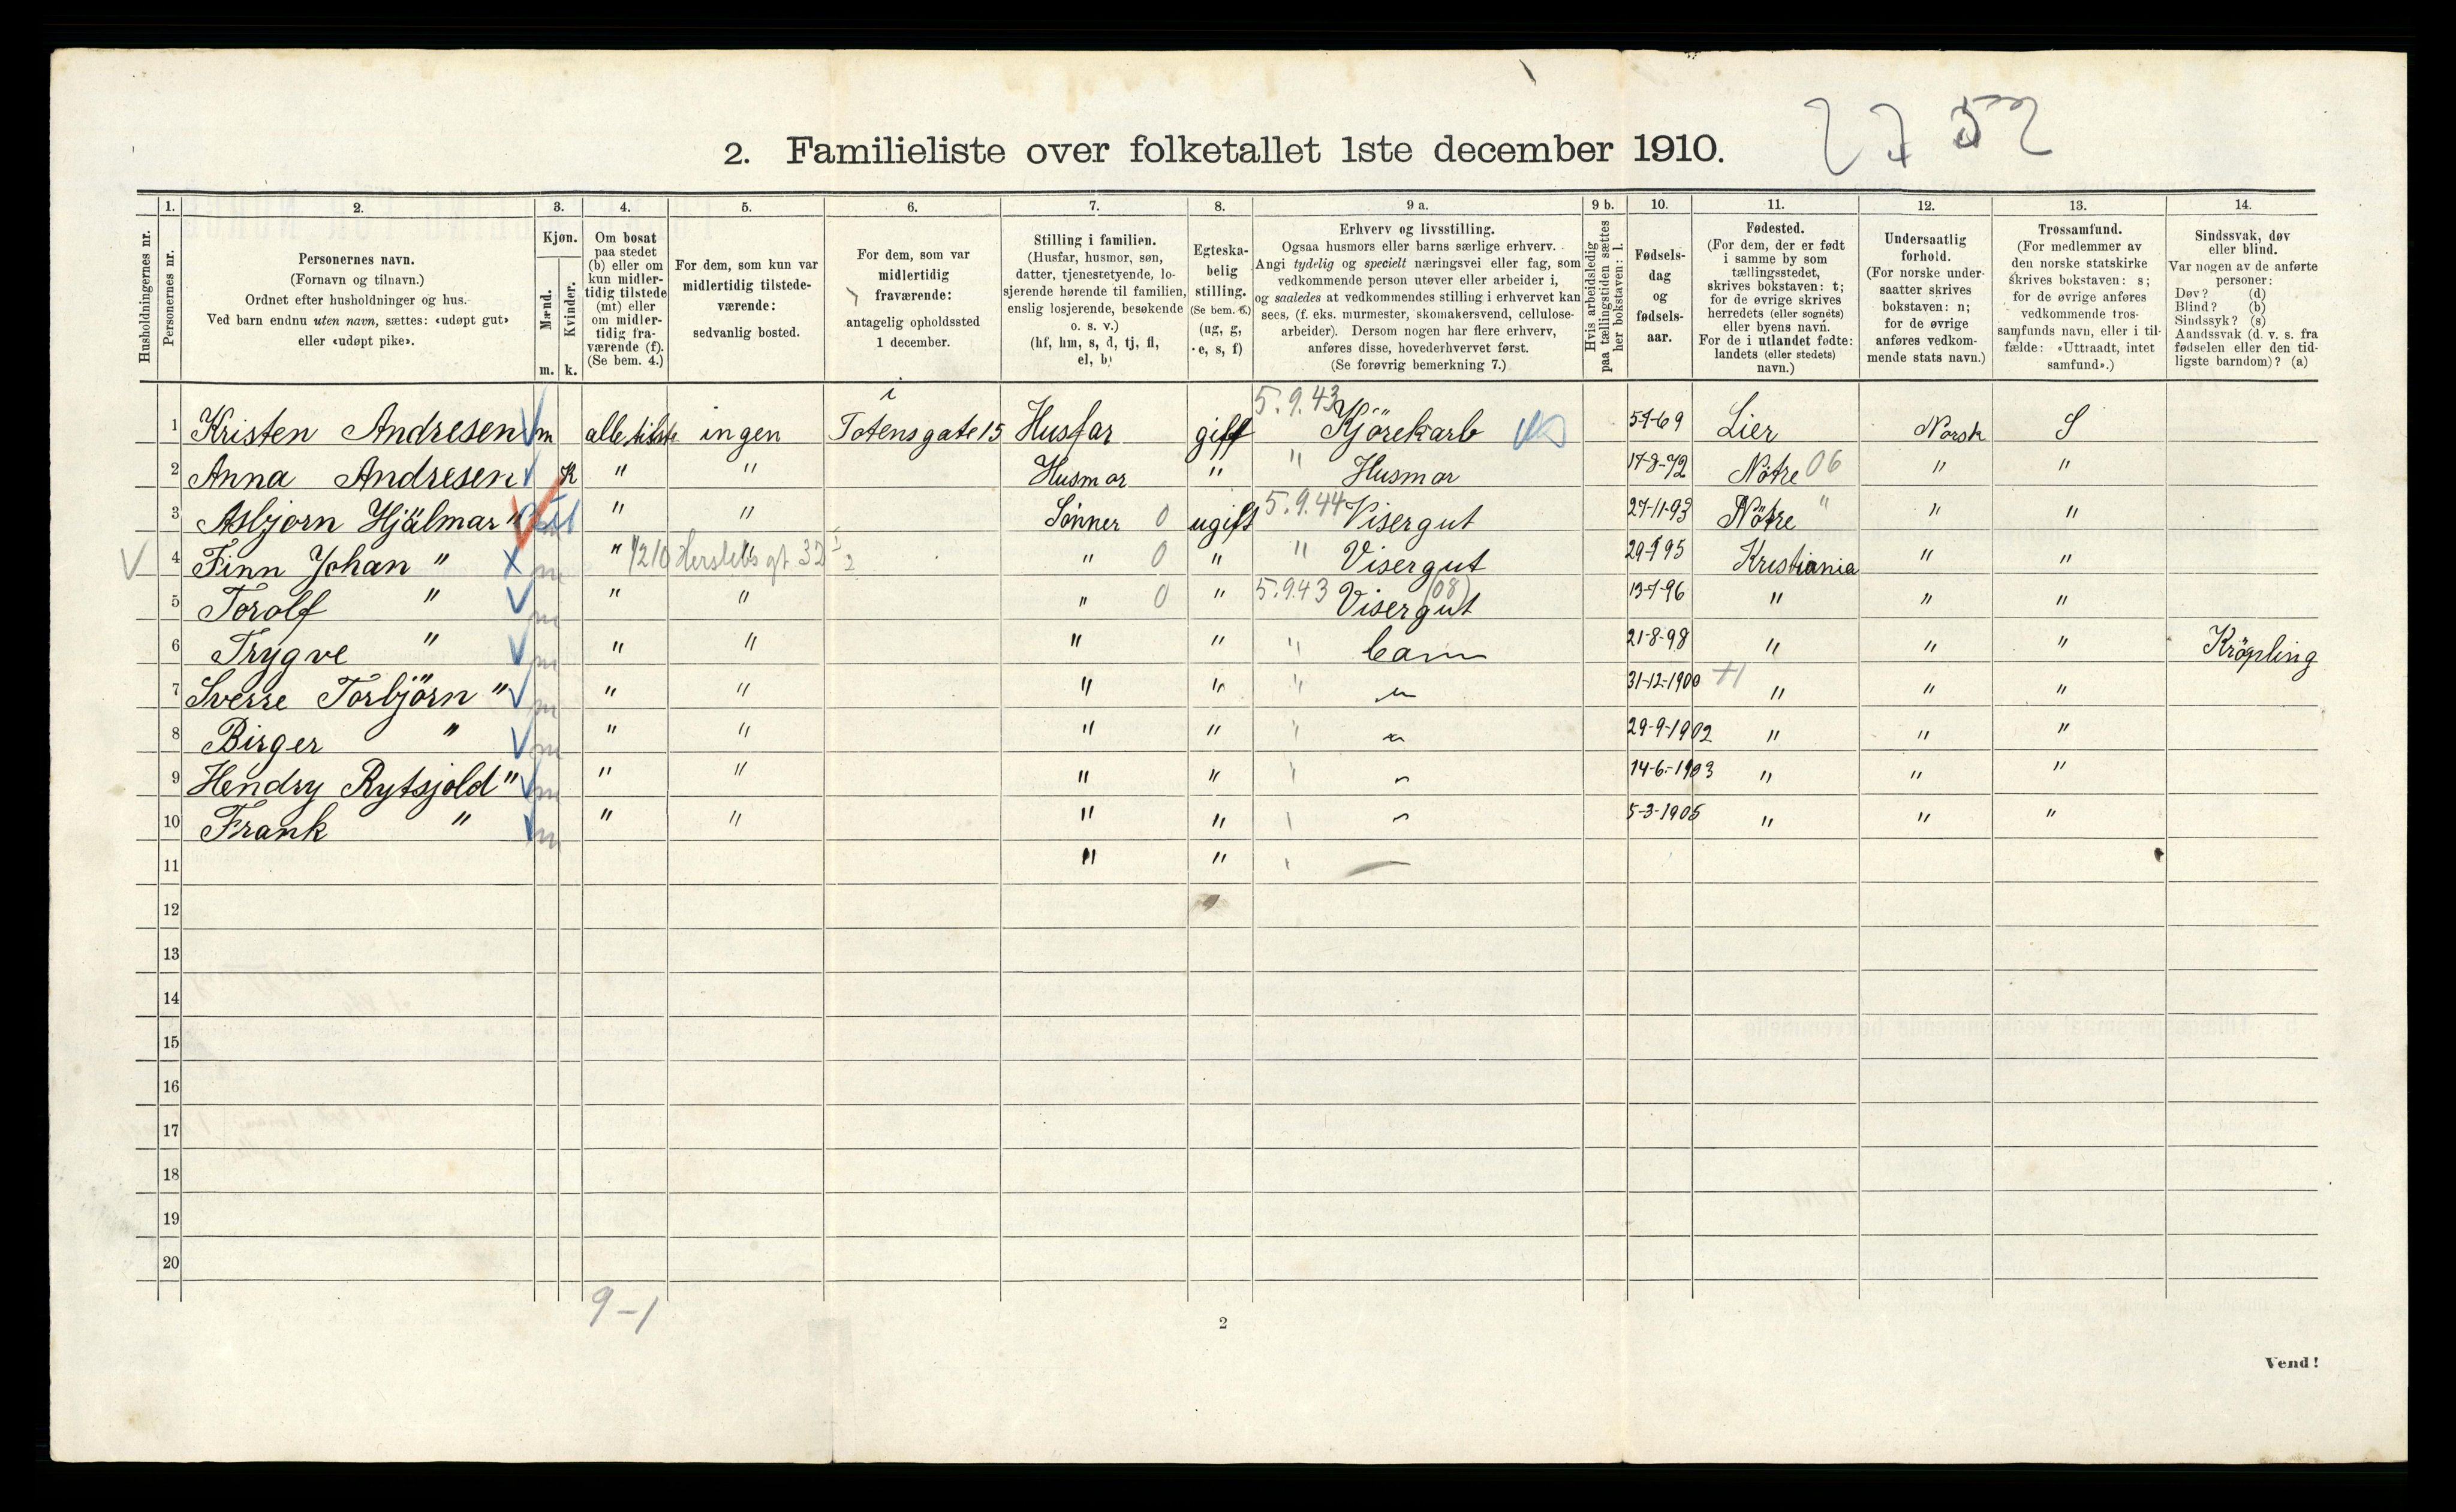 2. Familieliste over folketallet 1ste december 1910.
2752
Husholdningernes nr.
1. Personernes nr.
2. Personernes navn.
(Fornavn og tilnavn.)
Ordnet efter husholdninger og hus.
Ved barn endnu uten navn, sættes: «udøpt gut»
eller «udøpt pike».
3. Kjøn.
Mænd. m.
Kvinder. k.
4. Om bosat
paa stedet
(b) eller om
kun midler-
tidig tilstede
(mt) eller
om midler-
tidig fra-
værende (f).
(Se bem. 4.)
5. For dem, som kun var
midlertidig tilstede-
værende:
sedvanlig bosted.
6. For dem, som var
midlertidig
fraværende:
antagelig opholdssted
1 december.
7. Stilling i familien.
(Husfar, husmor, søn,
datter, tjenestetyende, lo-
sjerende hørende til familien,
enslig losjerende, besøkende
o. s. v.)
(hf, hm, s, d, tj, fl,
el, b)
8. Egteska-
belig
stilling.
(Se bem. 6.)
(ug, g,
e, s, f)
9 a. Erhverv og livsstilling.
Ogsaa husmors eller barns særlige erhverv.
Angi tydelig og specielt næringsvei eller fag, som
vedkommende person utøver eller arbeider i,
og saaledes at vedkommendes stilling i erhvervet kan
sees, (f. eks. murmester, skomakersvend, cellulose-
arbeider). Dersom nogen har flere erhverv,
anføres disse, hovederhvervet først.
(Se forøvrig bemerkning 7.)
9 b. Hvis arbeidsledig
paa tællingstiden sættes
her bokstaven: l.
10. Fødsels-
dag
og
fødsels-
aar.
11. Fødested.
(For dem, der er født
i samme by som
tællingsstedet,
skrives bokstaven: t;
for de øvrige skrives
herredets (eller sognets)
eller byens navn.
For de i utlandet fødte:
landets (eller stedets)
navn.)
12. Undersaatlig
forhold.
(For norske under-
saatter skrives
bokstaven: n;
for de øvrige
anføres vedkom-
mende stats navn.)
13. Trossamfund.
(For medlemmer av
den norske statskirke
skrives bokstaven: s;
for de øvrige anføres
vedkommende tros-
samfunds navn, eller i til-
fælde: «Uttraadt, intet
samfund».)
14. Sindssvak, døv
eller blind.
Var nogen av de anførte
personer:
Døv? (d)
Blind? (b)
Sindssyk? (s)
Aandssvak (d. v. s. fra
fødselen eller den tid-
ligste barndom)? (a)
1 Kristen Andresen m ingen i Totensgate 15 Husfar gift 5.9.43 Kjörekarb 5-1-69 Lier Norsk S
2 Anna Andresen K " " Husmor " " Husmor 17-8-72 Nötre 06 " "
3 Asbjorn Hjälmar " " " Sönner 0 ugift 5.9.44 Visergut 27-11-93 Nötre " " "
4 Finn Johan " m " 1/210 Herslebs gt 32 " 0 " " Visergut 95 Kristiania " "
5 Torolf " m " " " 0 " 5.9.43 Visergut (08) 13-1-96 " " "
6 Trygve " m " " " " " barn 21-8-98 " " " Kröpling
7 Sverre Torbjörn " m " " " " " " 31-12-1900 " " "
8 Birger " m " " " " " " 29-9-1902 " " "
9 Hendry Rytsjold " m " " " " " " 14-6-1903 " " "
10 Frank " m " " " " " " 5-3-1905 " " "
11 " " "
12
13
14
15
16
17
18
19
20
9-1
2
Vend!